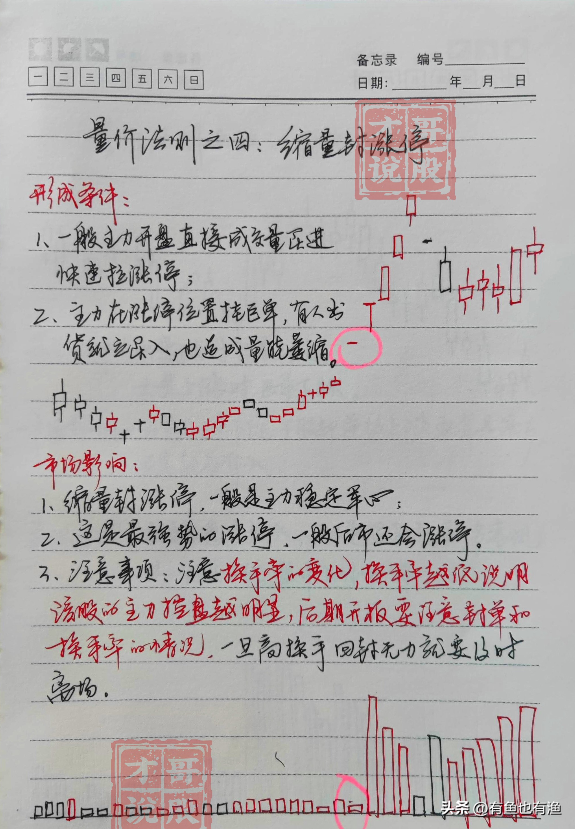 备忘录 编号
一 二 三 四 五 六 日
日期: 年 月 日
量价法则之四：缩量封涨停
才哥说股
形成条件：
1、一般主力开盘直接成交量跟进
快速拉涨停；
2、主力在涨停位置挂巨单，有人出
货就立马入，也造成量能萎缩。
市场影响：
1、缩量封涨停，一般是主力稳定军心；
2、这是最强势的涨停，一般后市还会涨停。
3、注意事项：注意换手率的变化，换手率越低说明
该股的主力控盘越明显，后期开板要注意封单和
换手率的情况，一旦高换手回封无力就要及时
离场。
才哥说股
头条 @有鱼也有渔